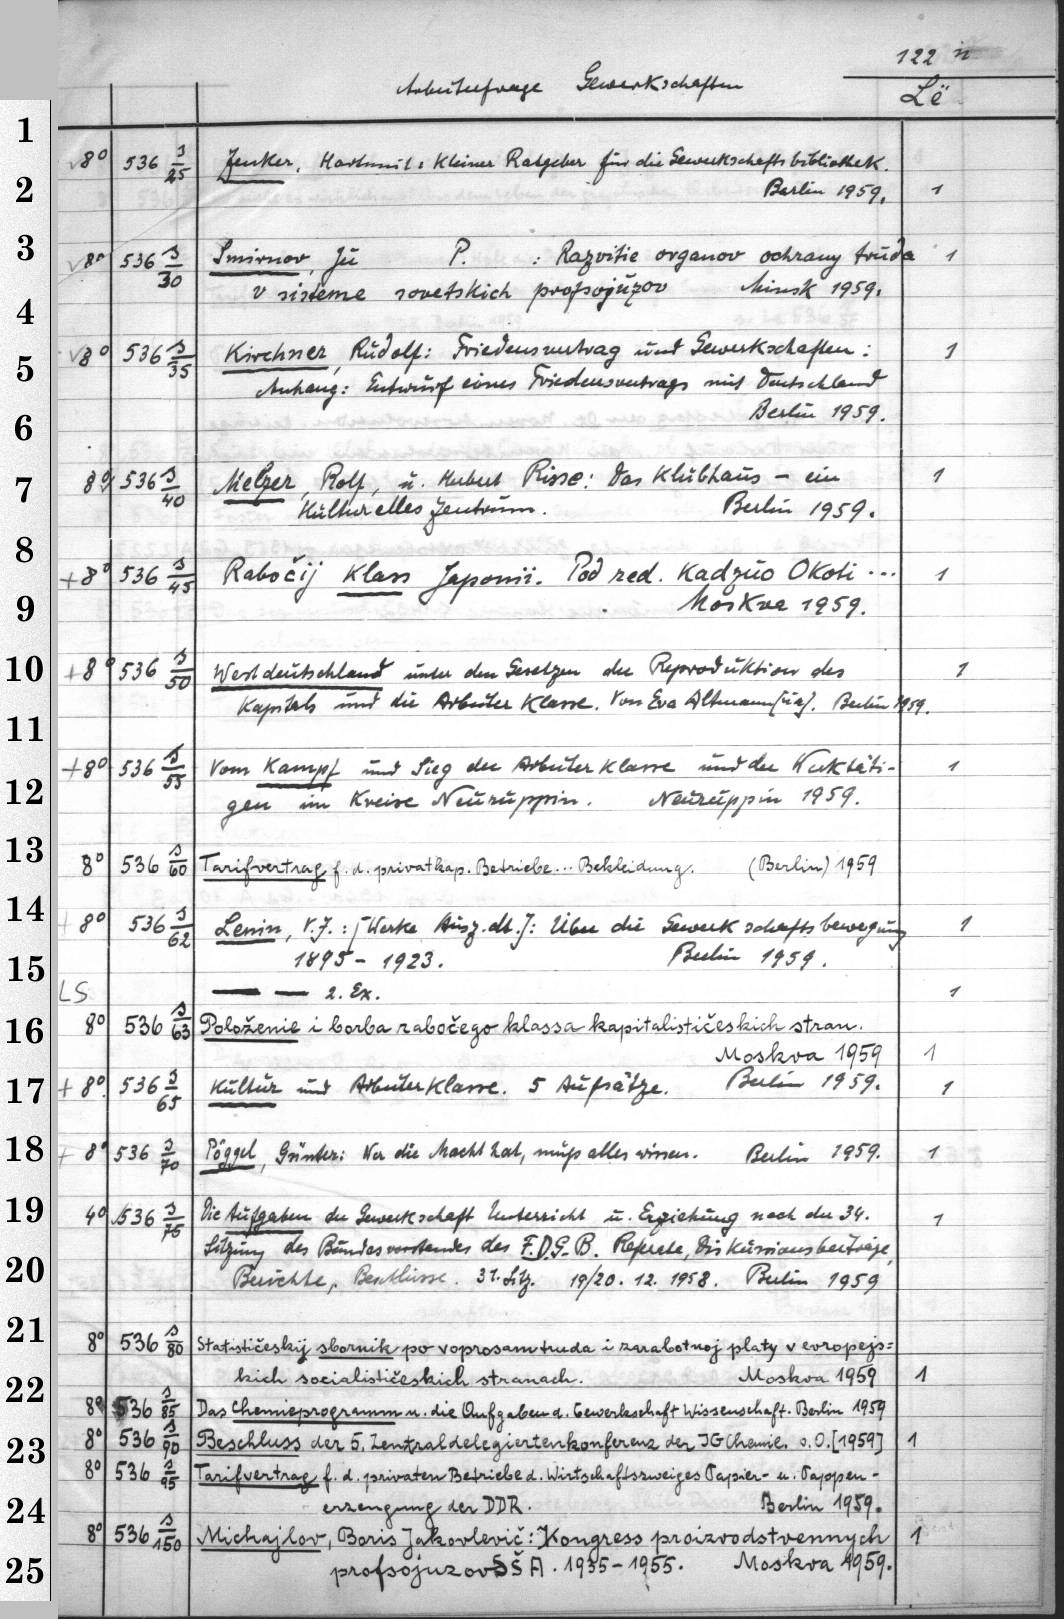 122 n
Arbeiterfrage Gewerkschaften
Lë
1
8° 536 s/25 Zenker, Hartmut: Kleiner Ratgeber für die Gewerkschaftsbibliothek.
2 Berlin 1959. 1
3 8° 536 s/30 Smirnov, Jū P. : Razvitie organov ochrany truda 1
v sisteme sovetskich profsojuzov Minsk 1959.
4
5 8° 536 s/35 Kirchner, Rudolf: Friedensvertrag und Gewerkschaften: 1
Anhang: Entwurf eines Friedensvertrags mit Deutschland
6 Berlin 1959.
7 8° 536 s/40 Melzer, Rolf, u. Hubert Risse: Das Klubhaus – ein 1
Kulturelles Zentrum. Berlin 1959.
8
+ 8° 536 s/45 Rabočij klass Japonii. Pod red. Kadzuo Okoti ... 1
9 Moskva 1959.
10 + 8° 536 s/50 Westdeutschland unter den Gesetzen der Reproduktion des 1
Kapitals und die Arbeiter Klasse. Von Eva Altmann [u.a]. Berlin 1959.
11
+ 8° 536 s/55 Vom Kampf und Sieg der Arbeiter Klasse und der Werktäti- 1
12 gen im Kreise Neuruppin. Neuruppin 1959.
13 8° 536 s/60 Tarifvertrag f. d. privatkap. Betriebe... Bekleidung. (Berlin) 1959
14 + 8° 536 s/62 Lenin, V. J. : [Werke Ausz. dt.]: Über die Gewerkschaftsbewegung 1
15 1895 – 1923. Berlin 1959.
LS — — 2. Ex. 1
16 8° 536 s/63 Položenie i borba rabočego klassa kapitalističeskich stran.
Moskva 1959 1
17 + 8° 536 s/65 Kultur und Arbeiterklasse. 5 Aufsätze. Berlin 1959. 1
18 + 8° 536 s/70 Pöggel, Günter: Wer die Macht hat, muß alles wissen. Berlin 1959. 1
19 4° 536 s/75 Die Aufgaben der Gewerkschaft Unterricht u. Erziehung nach der 34. 1
Sitzung des Bundesvorstandes des F.D.G.B. Referate, Diskussionsbeiträge,
20 Berichte, Beschlüsse. 31. Sitz. 19/20. 12. 1958. Berlin 1959
21 8° 536 s/80 Statističeskij sbornik po voprosam truda i zarabotnoj platy v evropejs=
kich socialističeskich stranach. Moskva 1959 1
22 8° 536 s/85 Das Chemieprogramm u. die Aufgaben d. Gewerkschaft Wissenschaft. Berlin 1959
23 8° 536 s/90 Beschluss der 5. Zentraldelegiertenkonferenz der IG Chemie. o.O. [1959] 1
8° 536 s/95 Tarifvertrag f. d. privaten Betriebe d. Wirtschaftszweiges Papier- u. Pappen-
24 erzeugung der DDR. Berlin 1959.
8° 536 s/150 Michajlov, Boris Jakovlevič: Kongress proizvodstvennych 1
25 profsojuzov SŠA. 1935–1955. Moskva 1959.